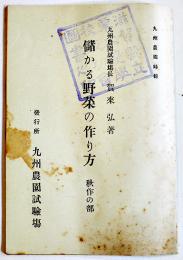 九州農園時報
九州農園試驗場長 賀來弘著
儲かる野菜の作り方
秋作の部
發行所 九州農園試驗場